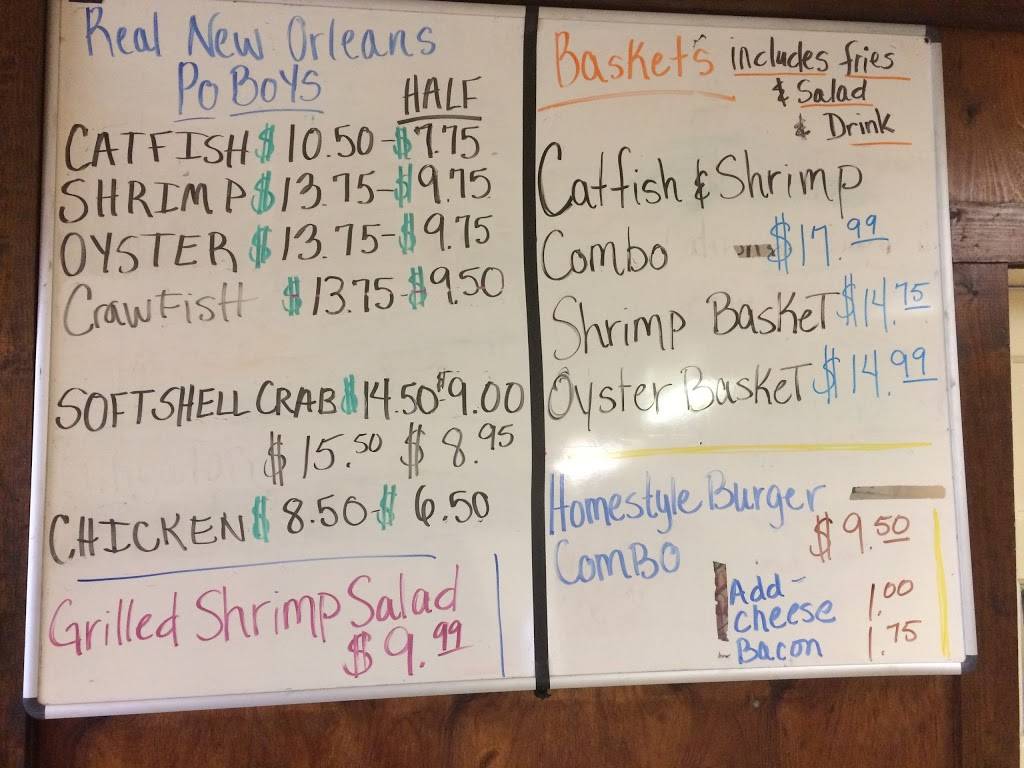 Real New Orleans
Po Boys
HALF
CATFISH $10.50-$7.75
SHRIMP $13.75-$9.75
OYSTER $13.75-$9.75
CrawFisH $13.75-$9.50
SOFTSHELL CRAB $14.50 $9.00
$15.50 $8.95
CHICKEN $8.50-$6.50
Grilled Shrimp Salad
$9.99
Baskets includes fries
& Salad
& Drink
Catfish & Shrimp
Combo $17.99
Shrimp BaskeT $14.75
Oyster BaskeT $14.99
Homestyle Burger
ComBO $9.50
Add-
cheese 1.00
Bacon 1.75